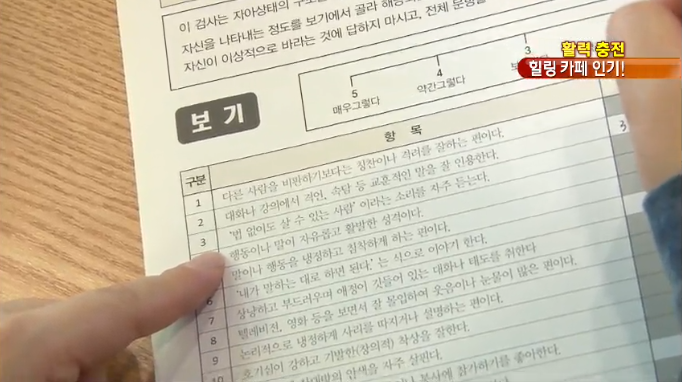 이 검사는 자아상태의 구조
자신을 나타내는 정도를 보기에서 골라 해당
자신이 이상적으로 바라는 것에 답하지 마시고, 전체 문항을
활력 충전
힐링 카페 인기!
보기
5 4 3
매우그렇다 약간그렇다
구분 항목
1 다른 사람을 비판하기보다는 칭찬이나 격려를 잘하는 편이다. 3
2 대화나 강의에서 격언, 속담 등 교훈적인 말을 잘 인용한다.
3 '법 없이도 살 수 있는 사람' 이라는 소리를 자주 듣는다.
행동이나 말이 자유롭고 활발한 성격이다.
말이나 행동을 냉정하고 침착하게 하는 편이다.
6 '내가 말하는 대로 하면 된다.' 는 식으로 이야기 한다.
7 상냥하고 부드러우며 애정이 깃들어 있는 대화나 태도를 취한다
8 텔레비전, 영화 등을 보면서 잘 몰입하여 웃음이나 눈물이 많은 편이다.
9 논리적으로 냉정하게 사리를 따지거나 설명하는 편이다.
10 호기심이 강하고 기발한(창의적) 착상을 잘한다.
상대방의 안색을 자주 살핀다.
봉사에 참가하기를 좋아한다.